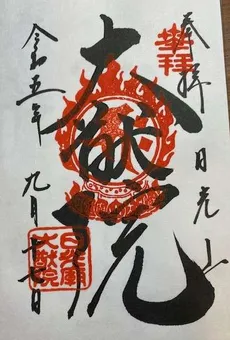 奉拝
日光山
大猷院
令和五年
九月十七日
日光廟
大猷院